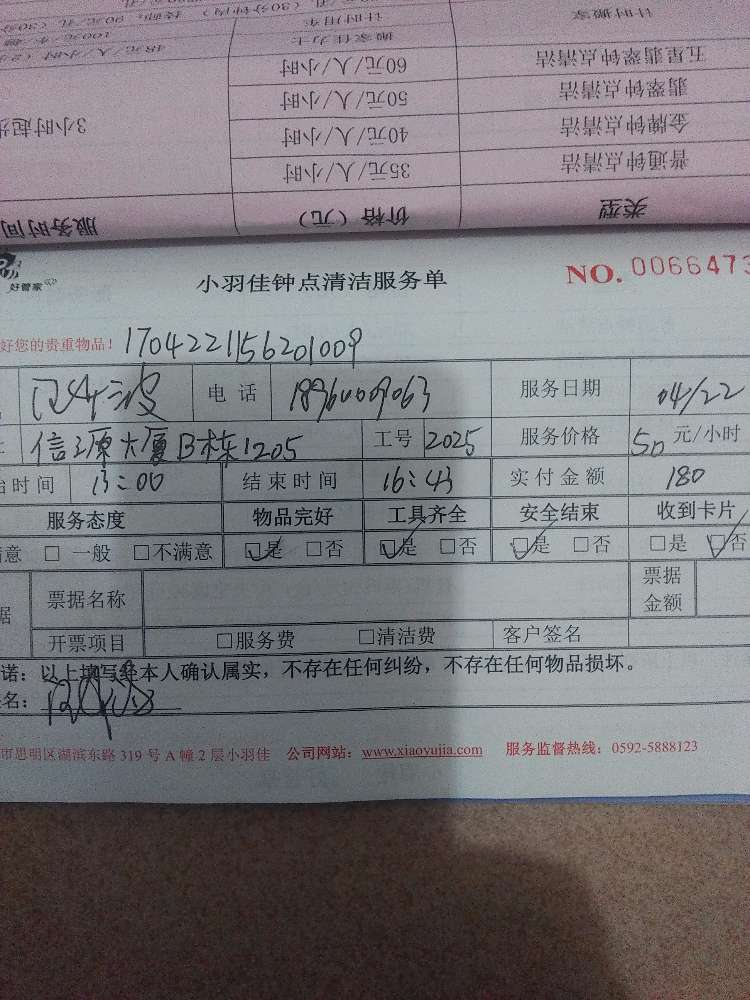 计时搬家
计时用车
搬家佳力士
五星翡翠钟点清洁 60元/人/小时
翡翠钟点清洁 50元/人/小时
金牌钟点清洁 40元/人/小时
普通钟点清洁 35元/人/小时
3小时起
类型 价格（元） 服务时间
好管家
小羽佳钟点清洁服务单
NO. 0066473
好您的贵重物品！ 1704221156201009
电话 服务日期 04/22
信源大厦B栋1205 工号 2025 服务价格 50 元/小时
时间 13:00 结束时间 16:43 实付金额 180
服务态度 物品完好 工具齐全 安全结束 收到卡片
意 □ 一般 □不满意 ☑是 □否 ☑是 □否 ☑是 □否 □是 ☑否
据 票据名称 票据金额
开票项目 □服务费 □清洁费 客户签名
诺：以上填写经本人确认属实，不存在任何纠纷，不存在任何物品损坏。
名：
市思明区湖滨东路 319 号 A 幢 2 层小羽佳 公司网站：www.xiaoyujia.com 服务监督热线：0592-5888123